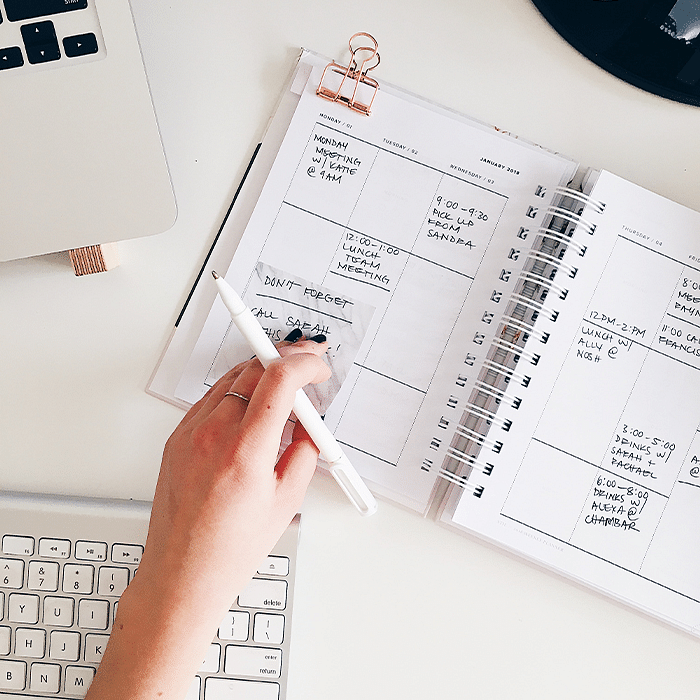 JANUARY 2018
MONDAY / 01
TUESDAY / 02
WEDNESDAY / 03
MONDAY
MEETING
W/ KATIE
@ 9AM
9:00-9:30
PICK UP
FROM
SANDRA
12:00-1:00
LUNCH
TEAM
MEETING
DON'T FORGET
CALL SARAH
THURSDAY / 04
12PM-2PM
LUNCH W/
ALLY @
NOSH
3:00-5:00
DRINKS W/
SARAH +
RACHAEL
6:00-8:00
DRINKS W/
ALEXA @
CHAMBAR
11:00
start
delete
enter
return
^ 6
& 7
* 8
( 9
Y U I
H J K
B N M